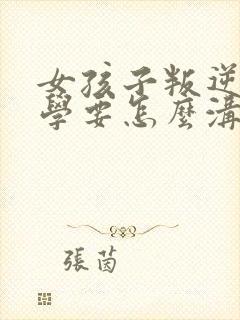 女孩子叛逆
學要怎麼溝
張茵